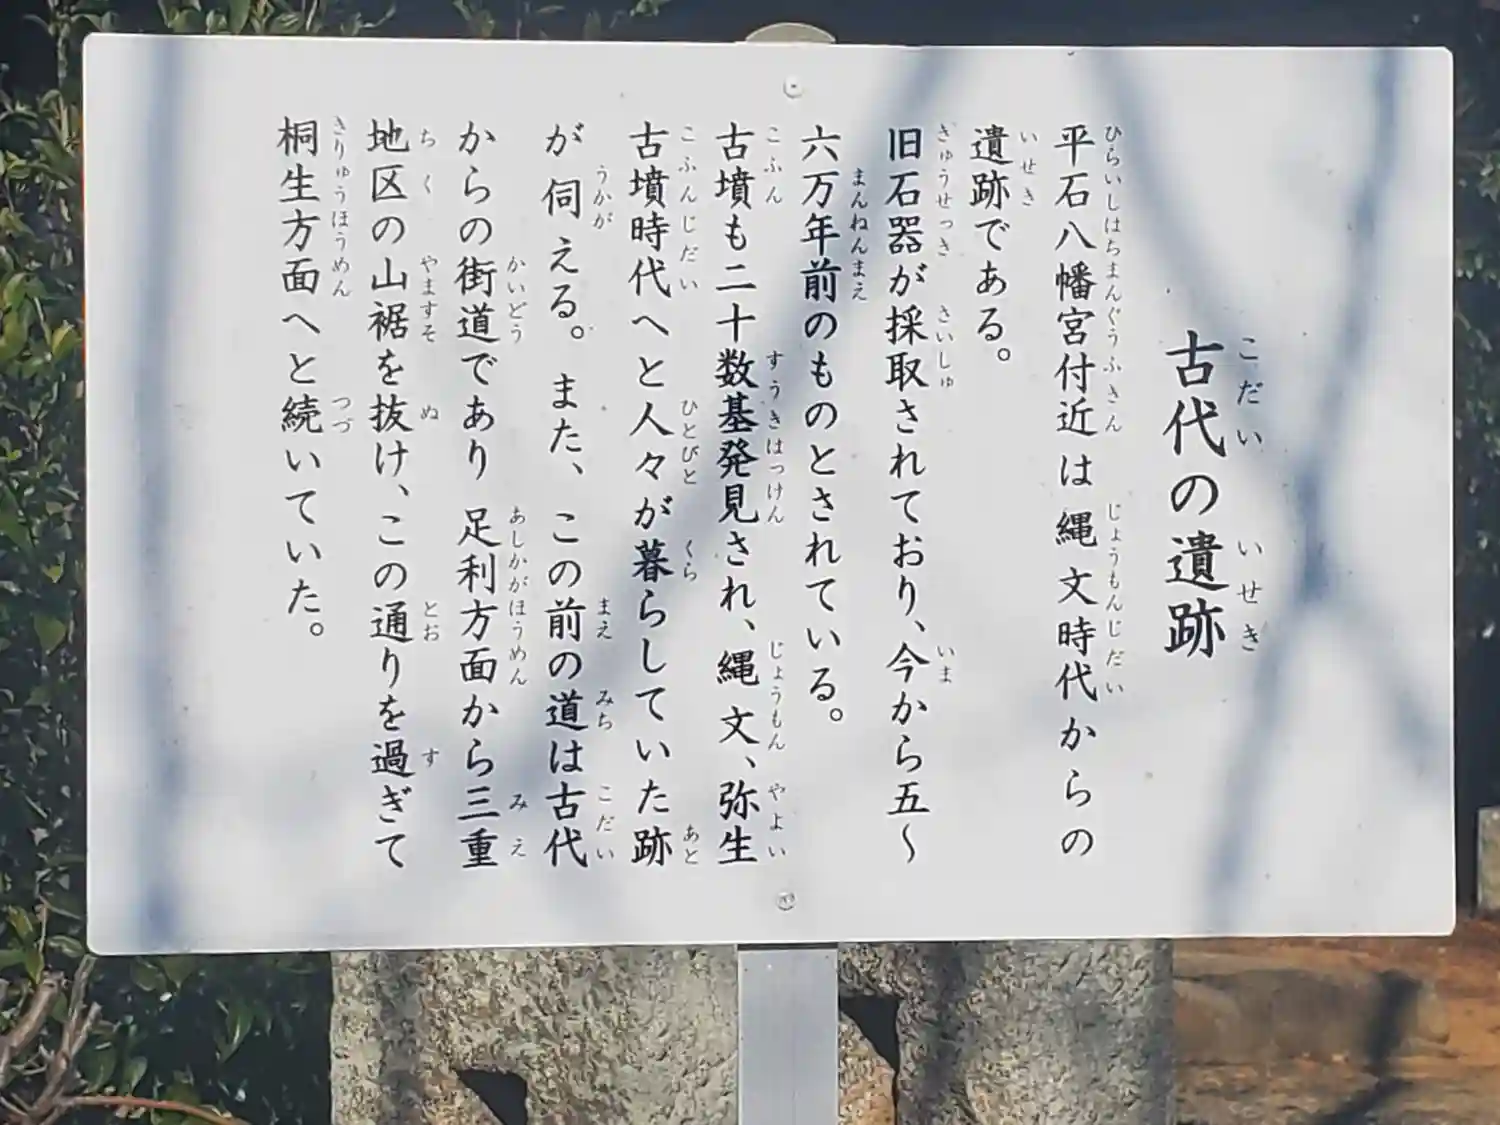 古代の遺跡
平石八幡宮付近は縄文時代からの
遺跡である。
旧石器が採取されており、今から五〜
六万年前のものとされている。
古墳も二十数基発見され、縄文、弥生
古墳時代へと人々が暮らしていた跡
が伺える。また、この前の道は古代
からの街道であり足利方面から三重
地区の山裾を抜け、この通りを過ぎて
桐生方面へと続いていた。